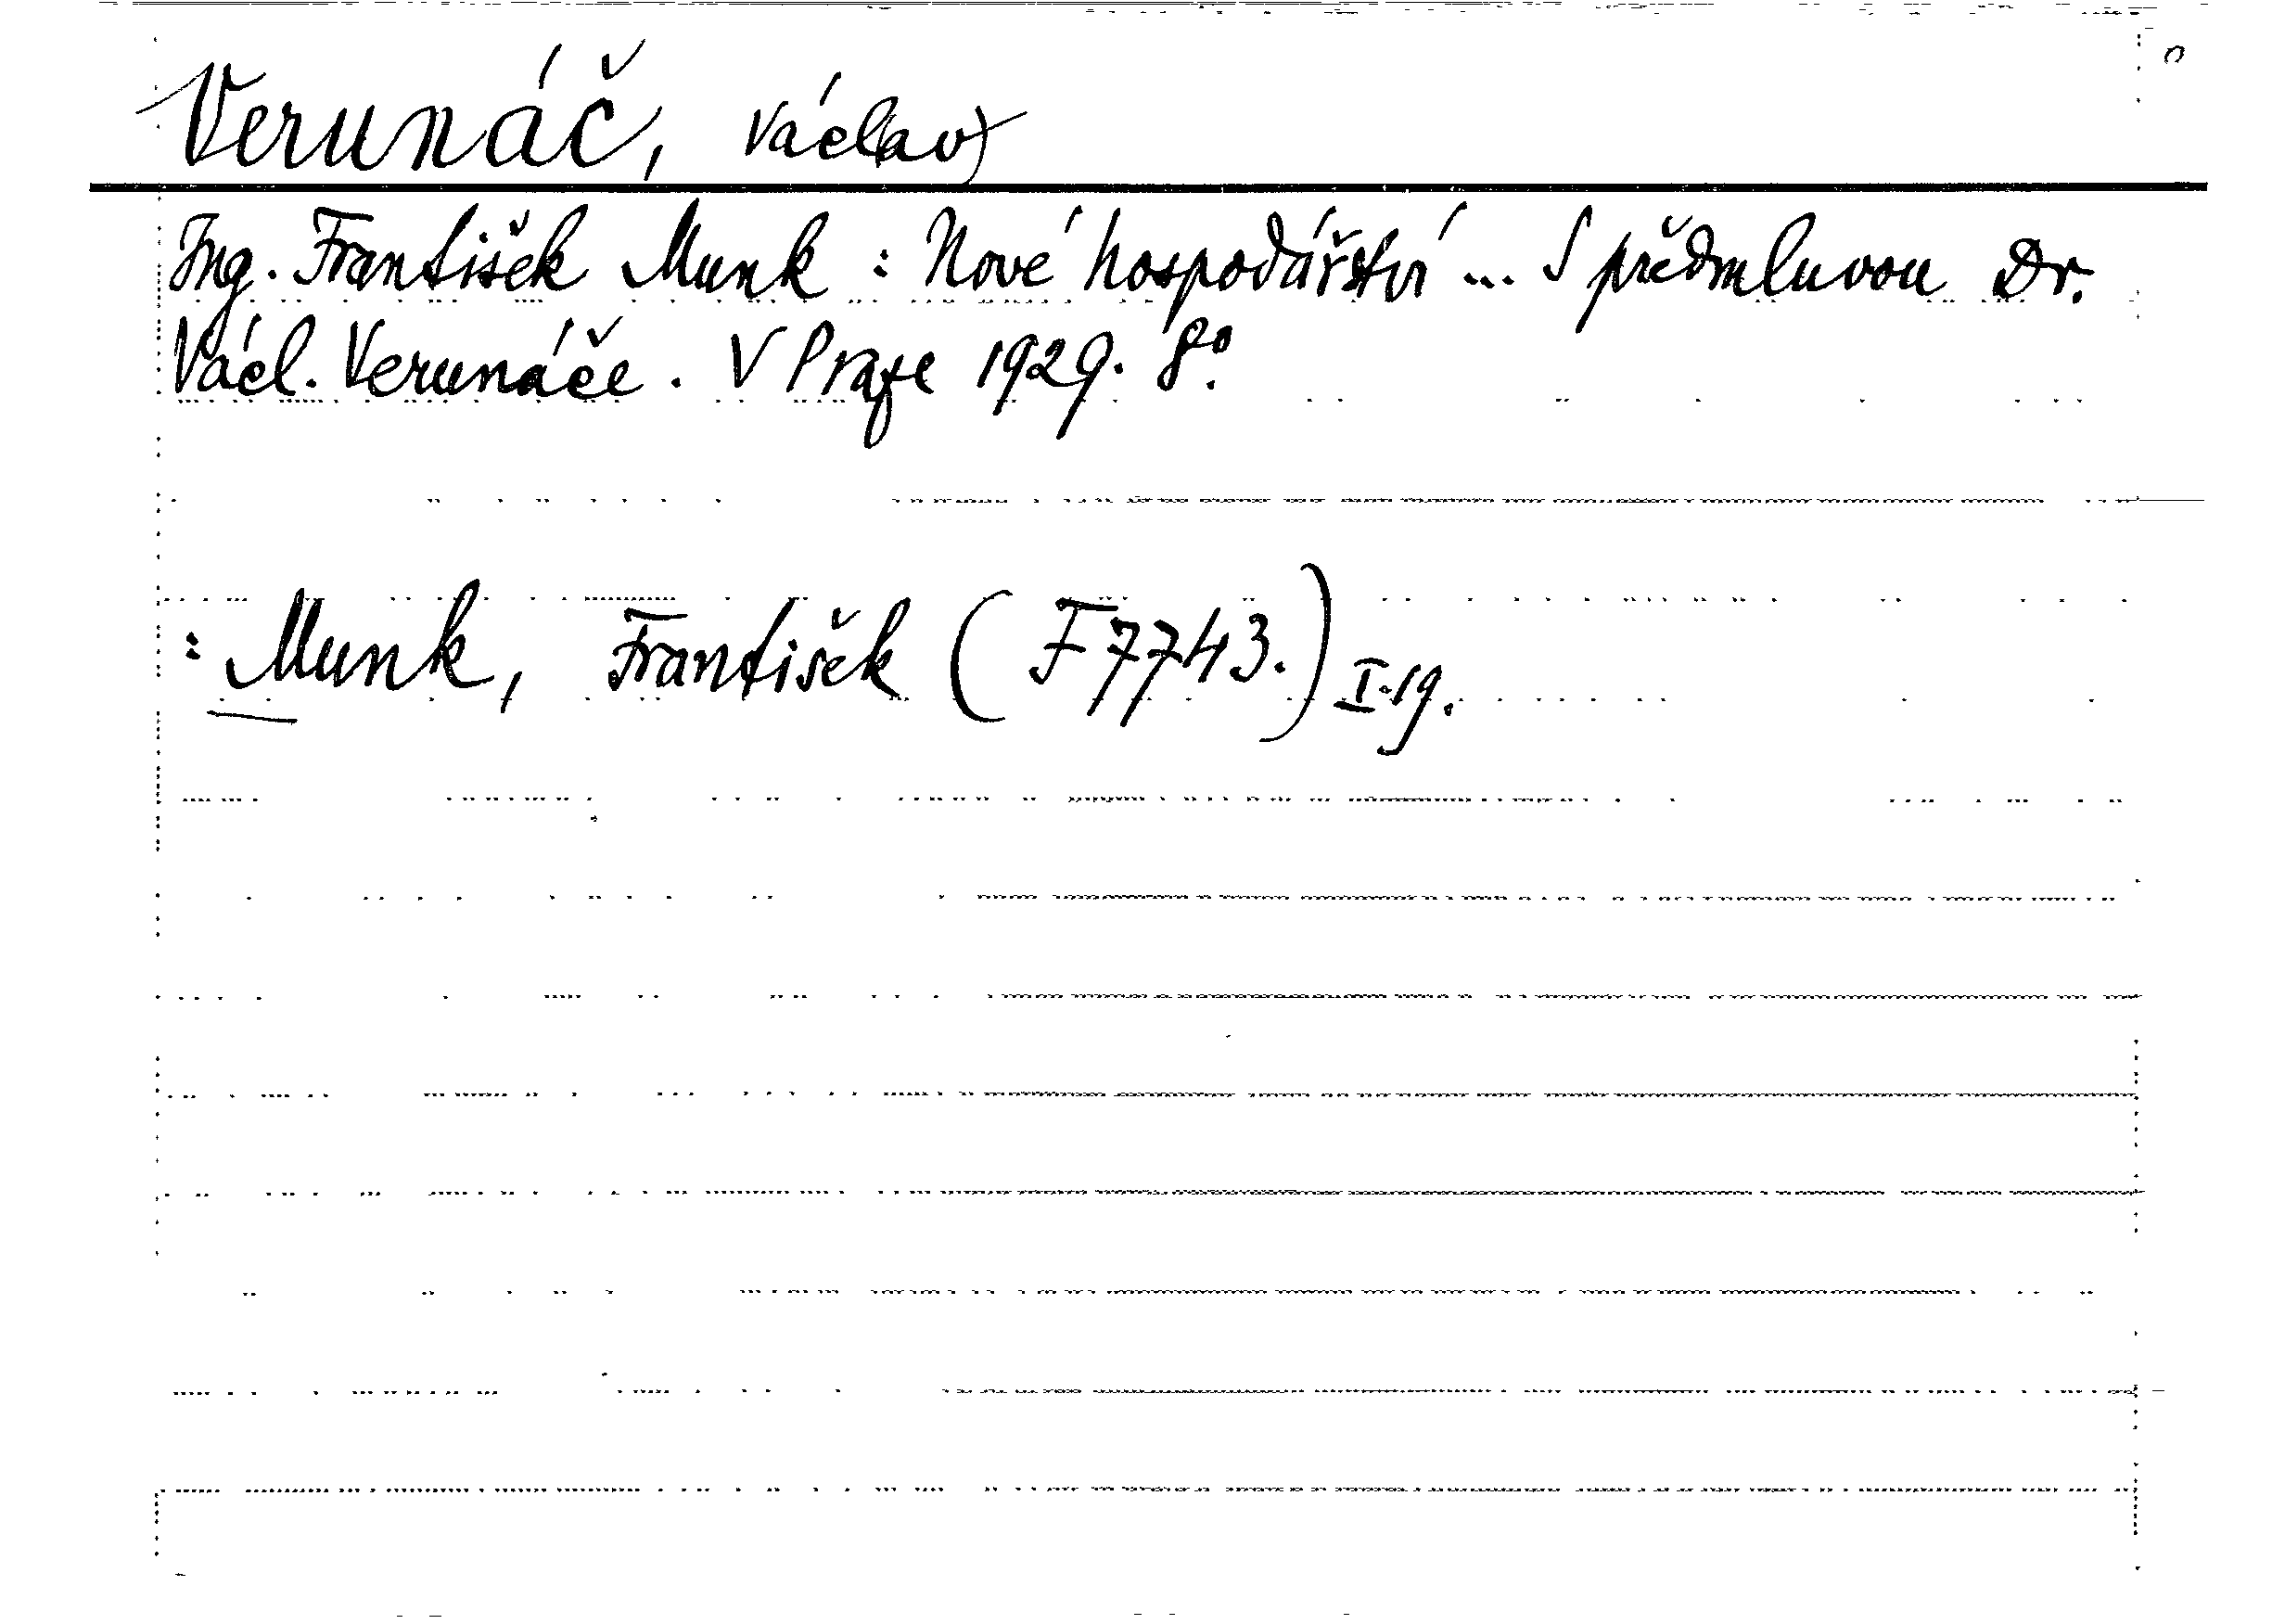 Verunáč, Václav
Ing. František Munk : Nové hospodářství ... S předmluvou Dr.
Václ. Verunáče . V Praze 1929. 8º.
: Munk, František ( F 7743.) I-19.